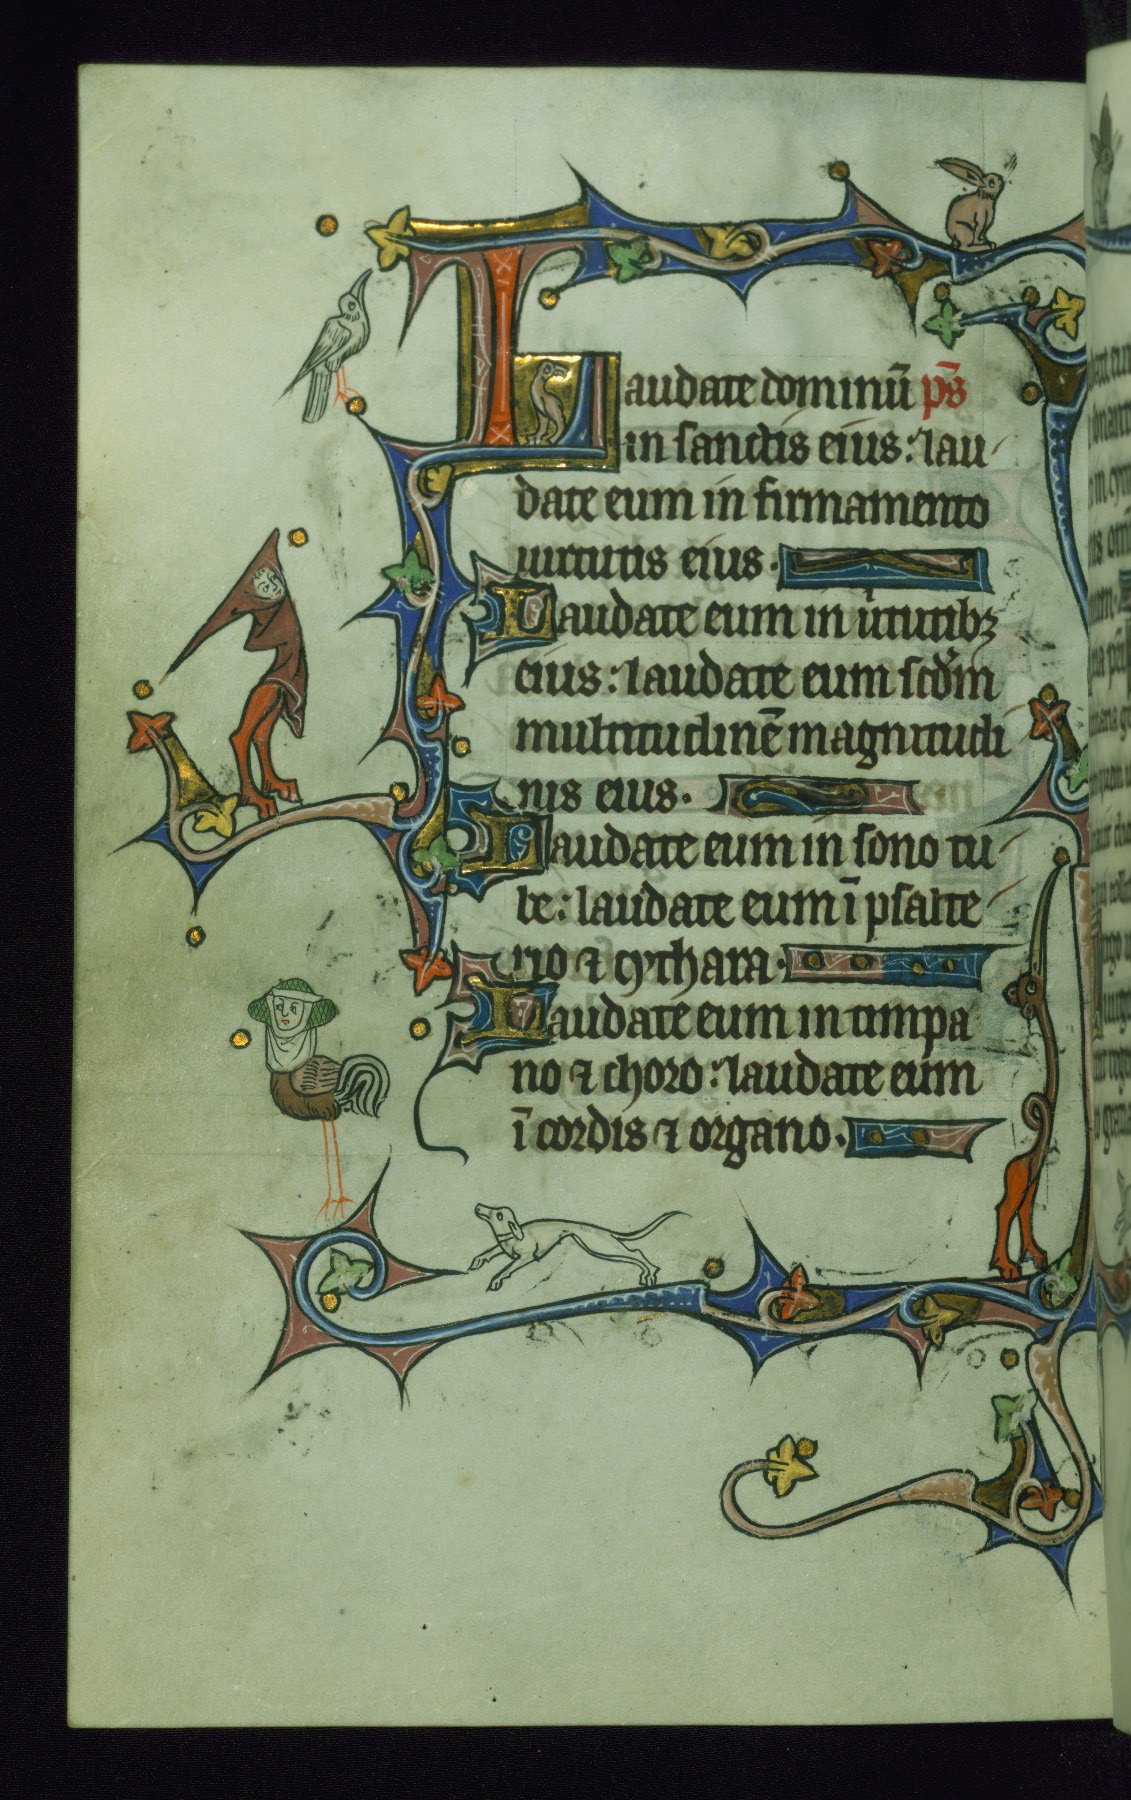 Laudate dominū p̄s
in sanctis eius: lau
date eum in firmamento
uirtutis eius.
Laudate eum in uͥtutibꝫ
eius: laudate eum scd̓m
multitudinē magnitudi
nis eius.
Laudate eum in sono tu
be: laudate eum ī psalte
rio ⁊ cythara.
Laudate eum in timpa
no ⁊ choro: laudate eum
ī cordis ⁊ organo.